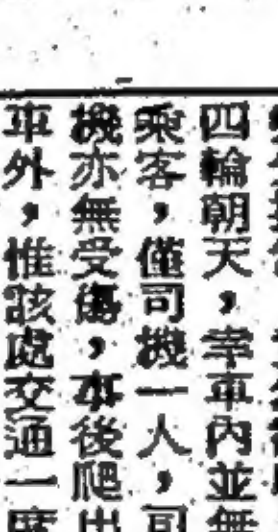 四輪朝天，幸車內並無
乘客，僅司機一人，司
機亦無受傷，事後爬出
車外，惟該處交通一度